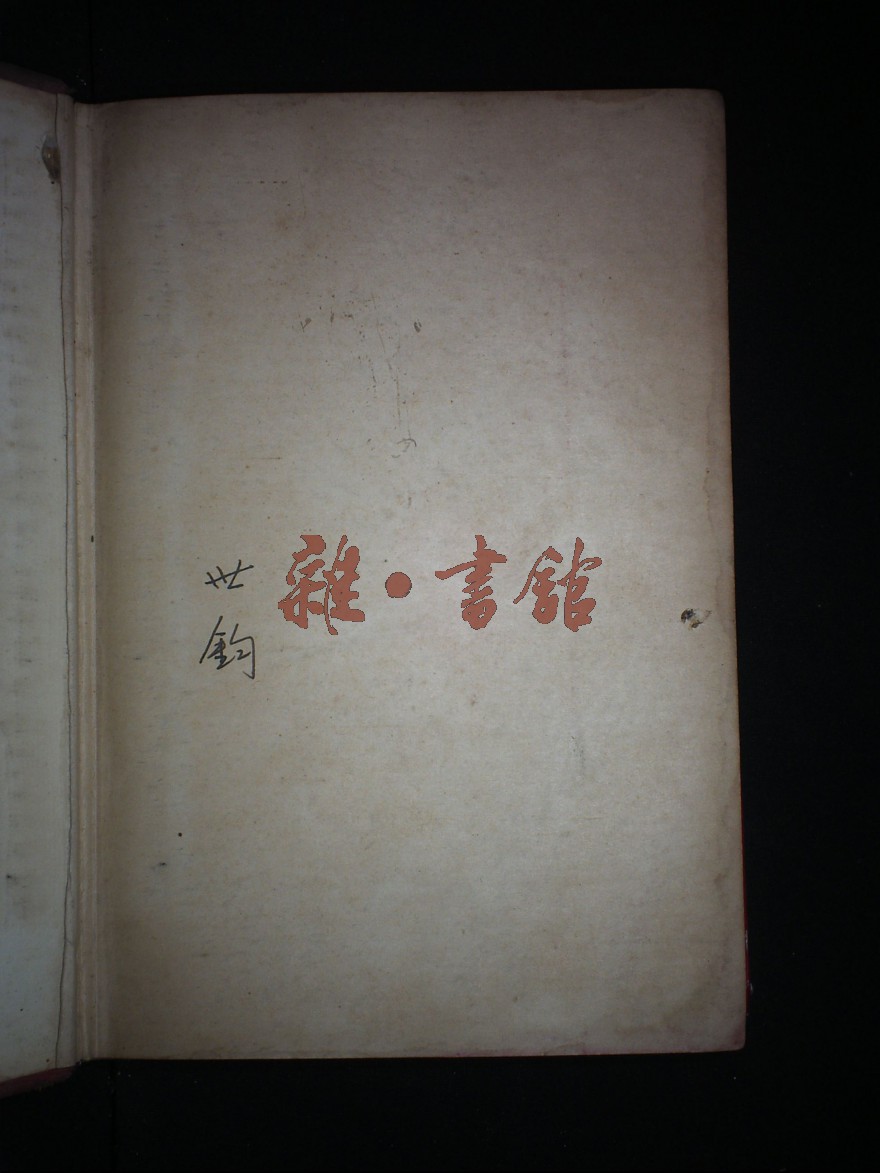 世钧
雜·書館